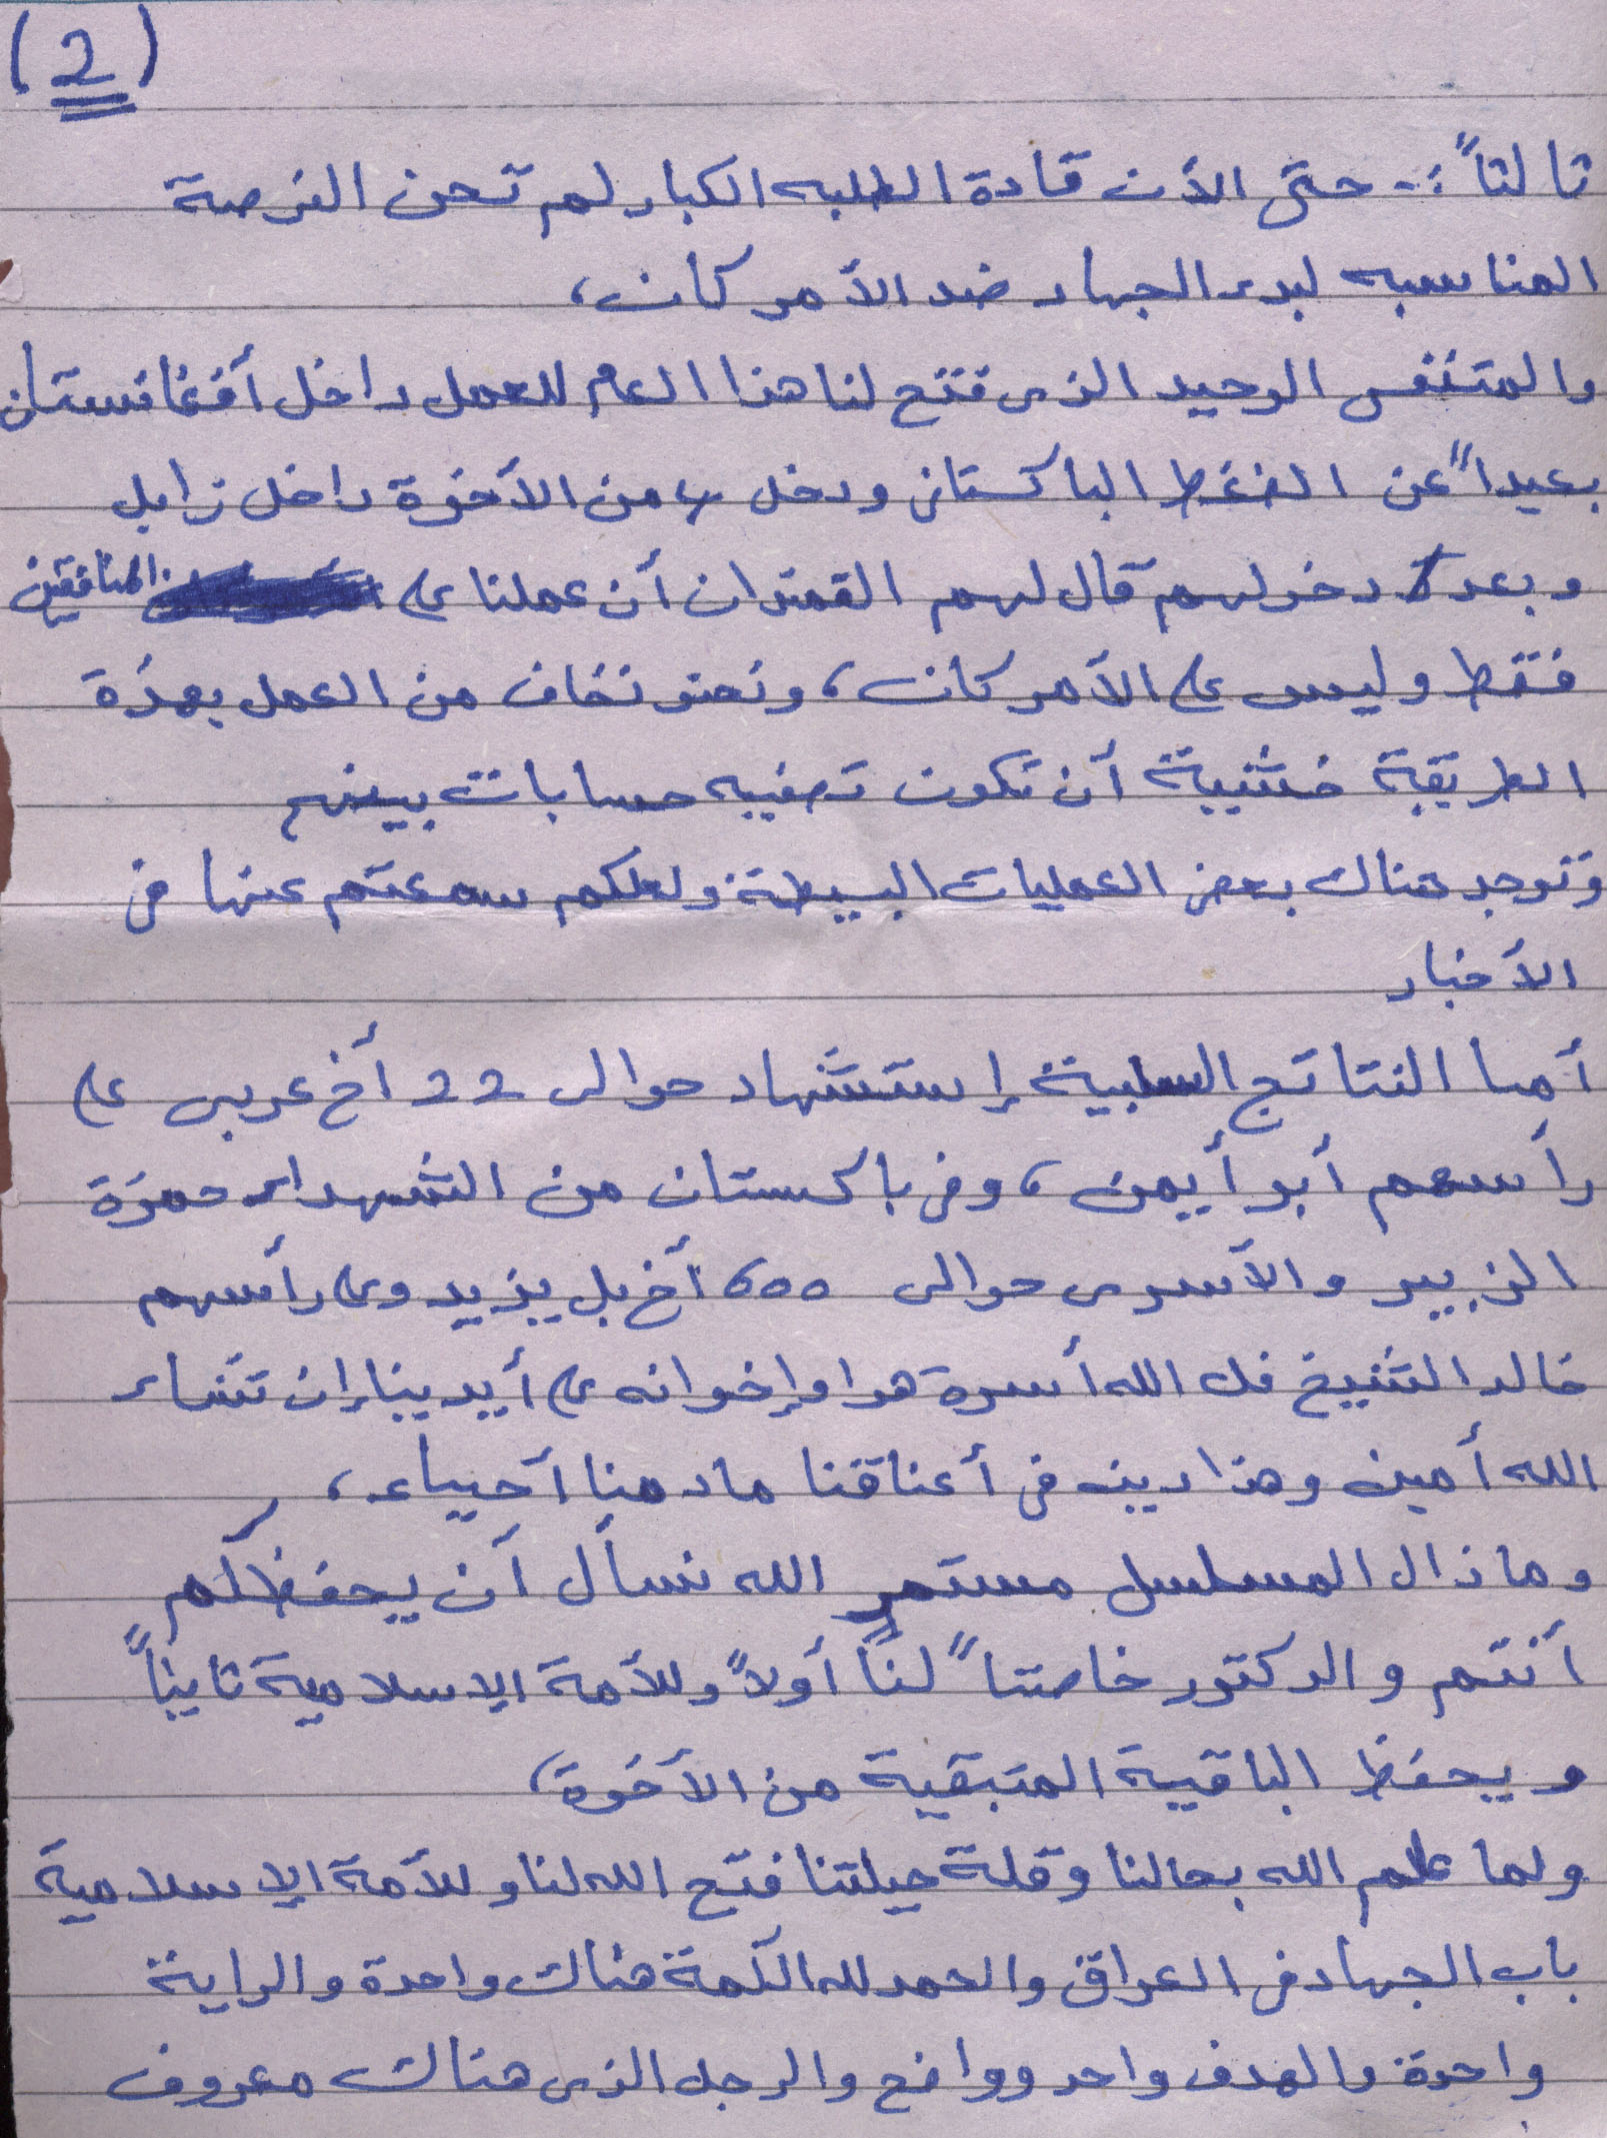 (2)
ثالثاً :- حتى الآن قادة الطلبه الكبار لم تحن الفرصة
المناسبه لبدء الجهاد ضد الأمركان،
والمتنفس الوحيد الذى فتح لنا هذا العام للعمل داخل أفغانستان
بعيداً عن الضغط الباكستانى ودخل من الأخوة داخل زابل
وبعد دخولهم قال لهم القمندان أن عملنا على المنافقين
فقط وليس على الأمركان، ونحن نخاف من العمل بهذة
الطريقة خشية أن تكون تصفيه حسابات بينهم
وتوجد هناك بعض العمليات البسيطة ولعلكم سمعتم عنها فى
الأخبار
أما النتائج السلبية إستشهاد حوالى 22 أخ عربى على
رأسهم أبو أيمن، وفى باكستان من الشهداء حمزة
الزبير والأسرى حوالى 600 أخ بل يزيد وعلى رأسهم
خالد الشيخ فك الله أسرة هوا وإخوانه على أيدينا إن شاء
الله أمين وهذا دين فى أعناقنا مادمنا أحياء،
وما زال المسلسل مستمر الله نسأل أن يحفظكم
أنتم والدكتور خاصتاً لنا أولاً وللأمة الإسلامية ثانياً
ويحفظ الباقية المتبقية من الأخوة،
ولما علم الله بحالنا وقلة حيلتنا فتح الله لنا وللأمة الإسلامية
باب الجهاد فى العراق والحمد لله الكمة هناك واحدة والراية
واحدة والهدف واحد وواضح والرجل الذى هناك معروف